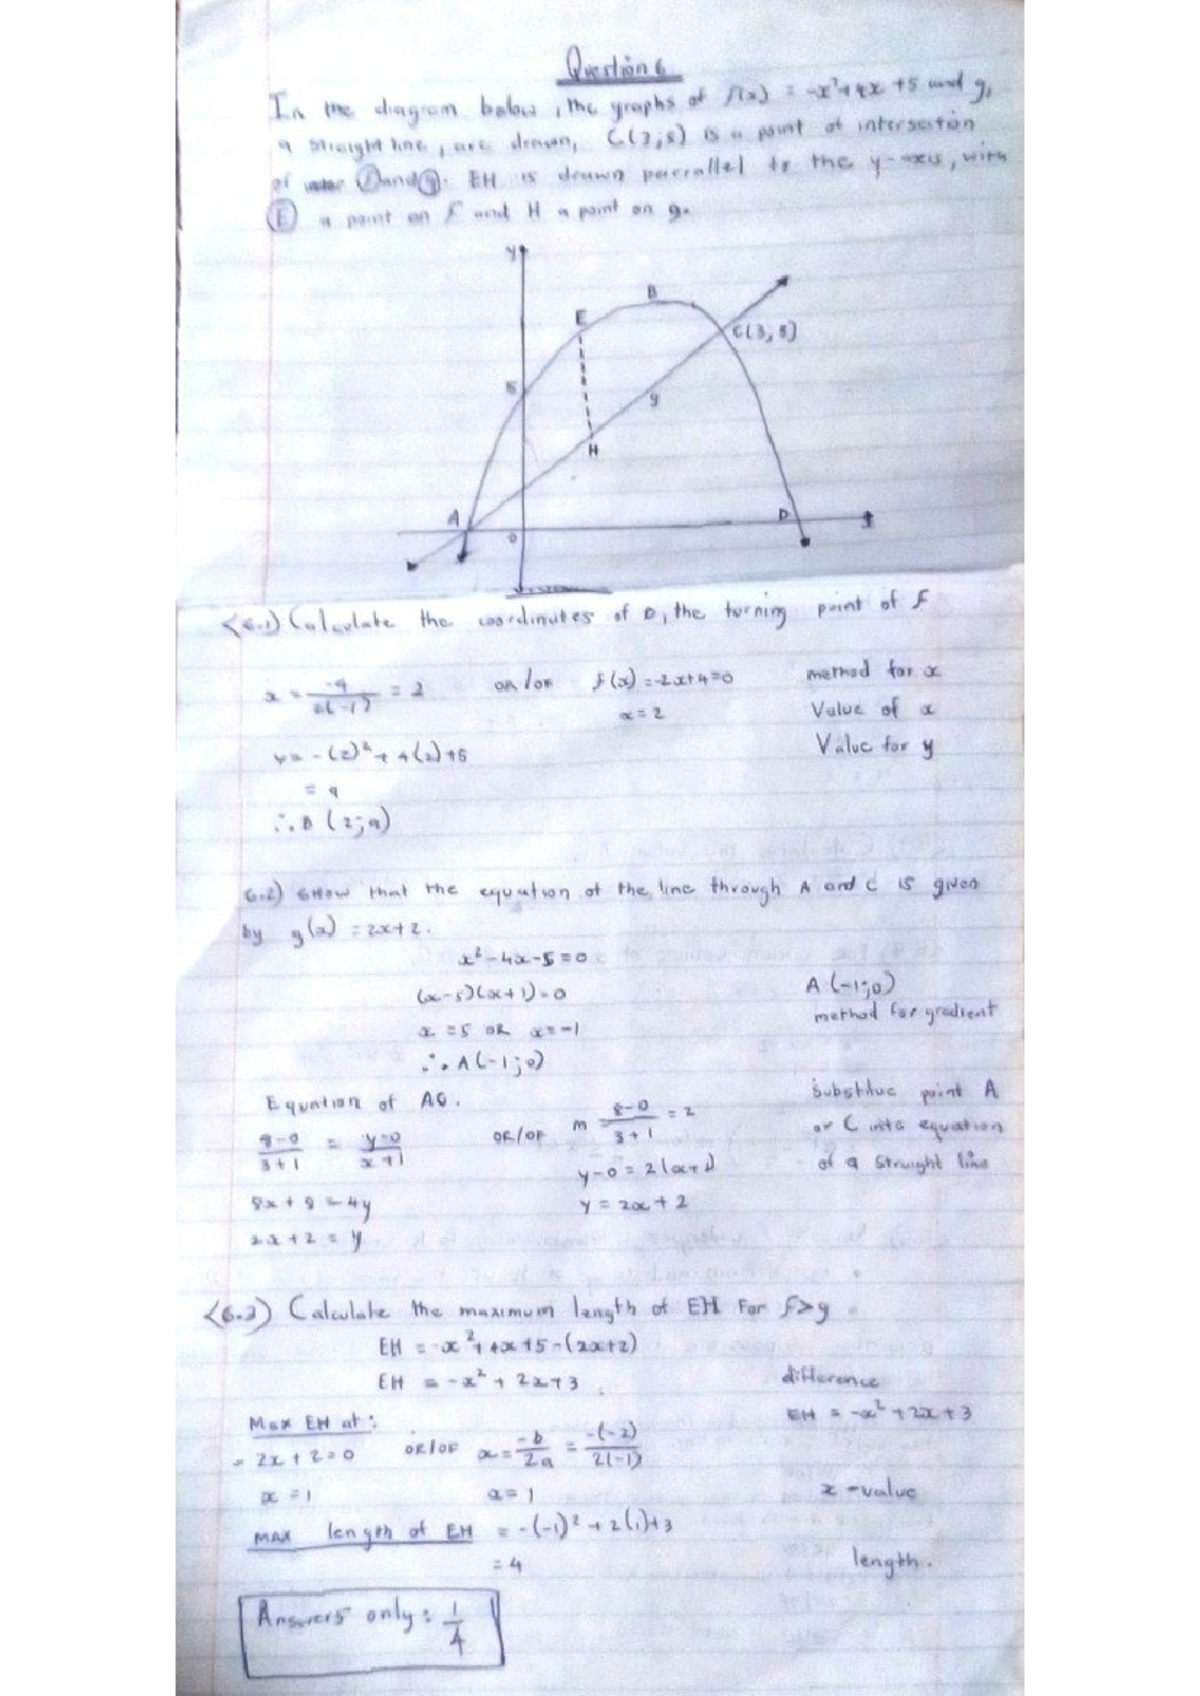 Question 6
In the diagram below, the graphs of f(x) = -x²+4x +5 and g,
a straight line, are drawn, C(3;8) is a point of intersection
of f and g. EH is drawn parrallel to the y-axis, with
E a point on f and H a point on g.
y
B
E
C(3, 8)
5
g
H
A
D
0
6.1) Calculate the coordinates of D, the turning point of f
x = -4/2(-1) = 2 OR/OF f(x) = -2x+4=0 method for x
x=2 Value of x
y= -(2)²+ 4(2)+5 Value for y
= 9
∴ B (2;9)
6.2) Show that the equation of the line through A and C is given
by g(x) = 2x+2.
x² - 4x - 5 = 0
(x-5)(x+1)=0 A(-1;0)
method for gradient
x = 5 OR x=-1
∴ A(-1;0)
Equation of AC. point A
8-0/3+1 = y-0/x+1 OR/OF m 8-0/3+1 = 2 or C into equation
y-0 = 2(x+1) of a straight line
8x + 8 = 4y y = 2x + 2
2x + 2 = y
6.3) Calculate the maximum length of EH For f>g
EH = -x²+ 4x+5-(2x+2)
EH = -x² + 2x+3 difference
EH = -x² +2x+3
Max EH at:
- 2x + 2=0 OR/OF x = -b/2a = -(-2)/2(-1)
x = 1 x= 1 x-value
max length of EH = -(-1)² + 2(1)+3
= 4 length.
Answers only: 1/4